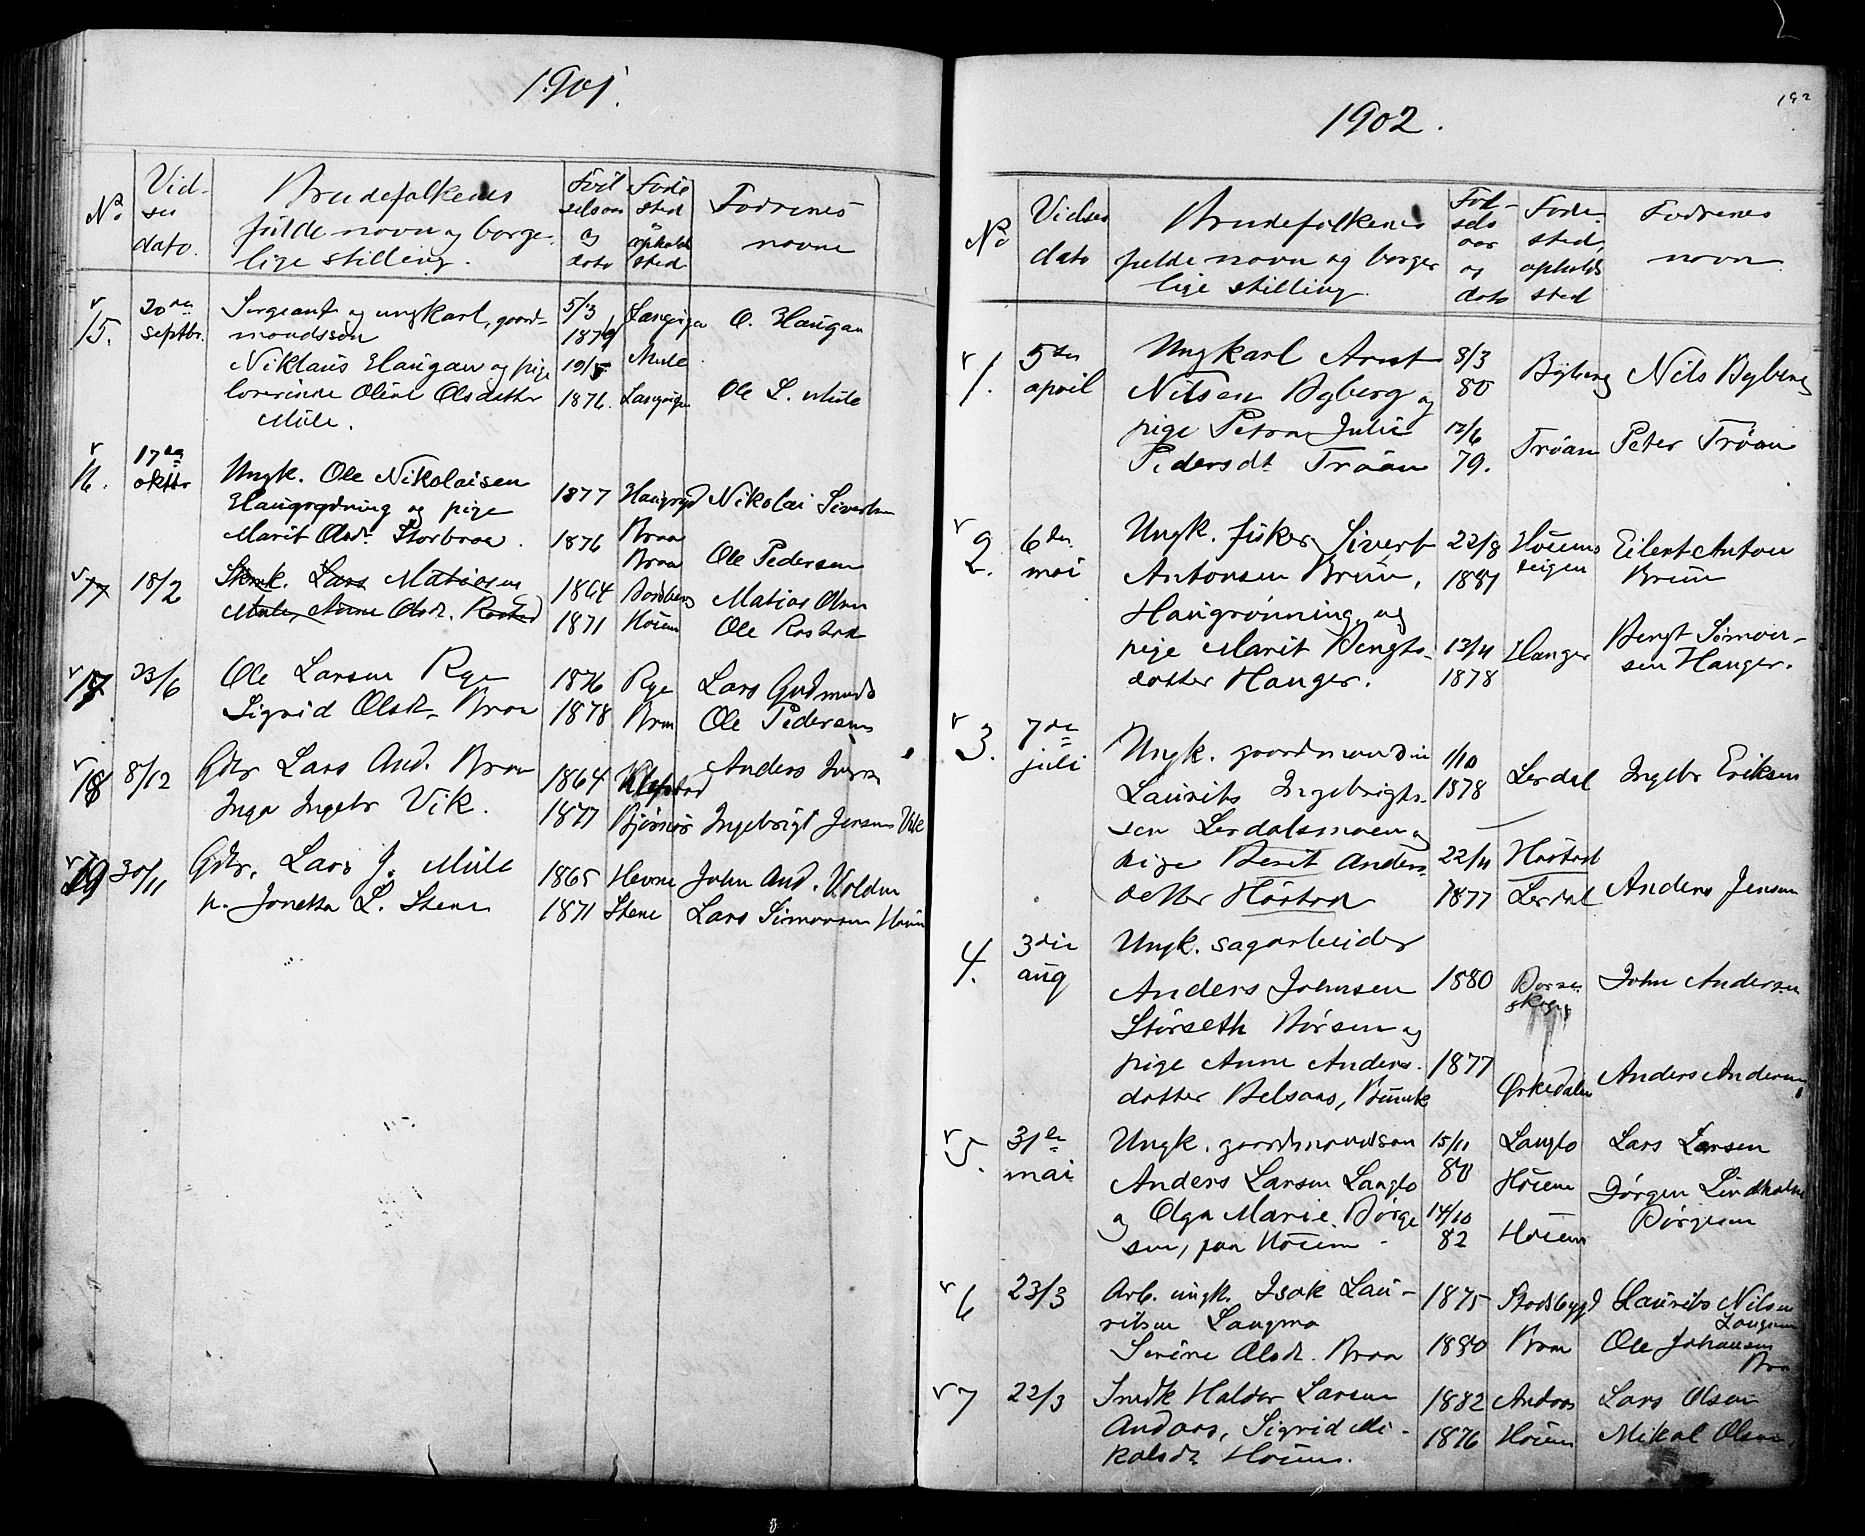 1901.
No
Vid-
ses
dato.
Brudefolkenes
fulde navn og borger-
lige stilling.
Fød
selsaar
og
dato
Føde
sted
ophold
sted
Fædrenes
navne
15.
20de
septbr.
Sergeant og ungkarl, gaard-
mandssøn
Niklaus Haugan og pige
lærerinde Oline Olsdatter
Mule.
5/3
1879
10/5
1876.
Mule
O. Haugan
Ole L. Mule
16.
17de
oktbr
Ungk. Ole Nikolaisen
Haugrydning og pige
Marit Olsd. Storbraa.
1877
1876
Haugryd
Braa
Braa
Nikolai Sivertsen
Ole Pedersen
17
18/2
Lars Matiasen
Mule, Anne Olsd. Rostad
1864
1871
Høiem
Matias Olsen
Ole Rostad
17
23/6
Ole Larsen Rye
Sigrid Olsd. Braa
1876
1878
Rye
Braa
Lars Gudmunds
Ole Pedersen
18
8/12
Gdbr Lars And. Braa
Inga Ingebr Vik.
1864
1877
Bjørnør
Anders
Ingebrigt Jensen Vik
19
30/11
Gdbr. Lars J. Mule
p. Jonetta L. Stene
1865
1871
Hevne
Stene
John And. Volden
Lars Simonsen Høiem
1902.
192
No
Vidses
dato
Brudefolkenes
fulde navn og borger
lige stilling.
Fød-
sels
aar
og
dato
Føde-
sted,
opholds
sted
Fædrenes
navn
1.
5te
april
Ungkarl Arnt
Nilsen Byberg og
pige Petra Julie
Pedersdt Trøan
8/3
80
12/6
79.
Byberg
Trøan
Nils Byberg
Peter Trøan
2.
6te
mai
Ungk. fisker Sivert
Antonsen Bruun,
Haugrønning og
pige Marit Bengts-
datter Hanger.
22/8
1881
13/11
1878
Høiems
eigen
Hanger
Eilert Anton
Bruun
Bengt Simon-
sen Hanger.
3.
7de
juli
Ungk. gaardmand
Laurits Ingebrigt-
sen Lerdalsmoen og
pige Berit Anders
datter Hostad
1/10
1878
22/11
1877
Lerdal
Hostad
Lerdal
Ingebr Eriksen
Anders Jensen
4.
3die
aug
Ungk. sagarbeider
Anders Johnsen
Størseth Børsen og
pige Anne Anders-
datter Belsaas, Buvik
1880
1877
Børse
skogn
Orkedalen
John Andersen
Anders Andersen
5.
31te
mai
Ungk. gaardmandsøn
Anders Larsen Langlo
og Olga Marie Børge
sen, paa Høiem
15/11
80
14/10
82
Langlo
Høiem
Høiem
Lars Larsen
Jørgen Lindholm
Børgesen
6
23/3
Arb. ungk. Isak Lau-
ritsen Langmo
Serine Olsd. Braa
1875
1880
Stadsbygd
Braa
Laurits Nilsen
Langmo
Ole Johansen
Braa
7
22/3
Smedk Haldor Larsen
Andaas, Sigrid Mi-
kalsd. Høiem.
1882
1876
Andaas
Høiem
Lars Olsen
Mikal Olsen